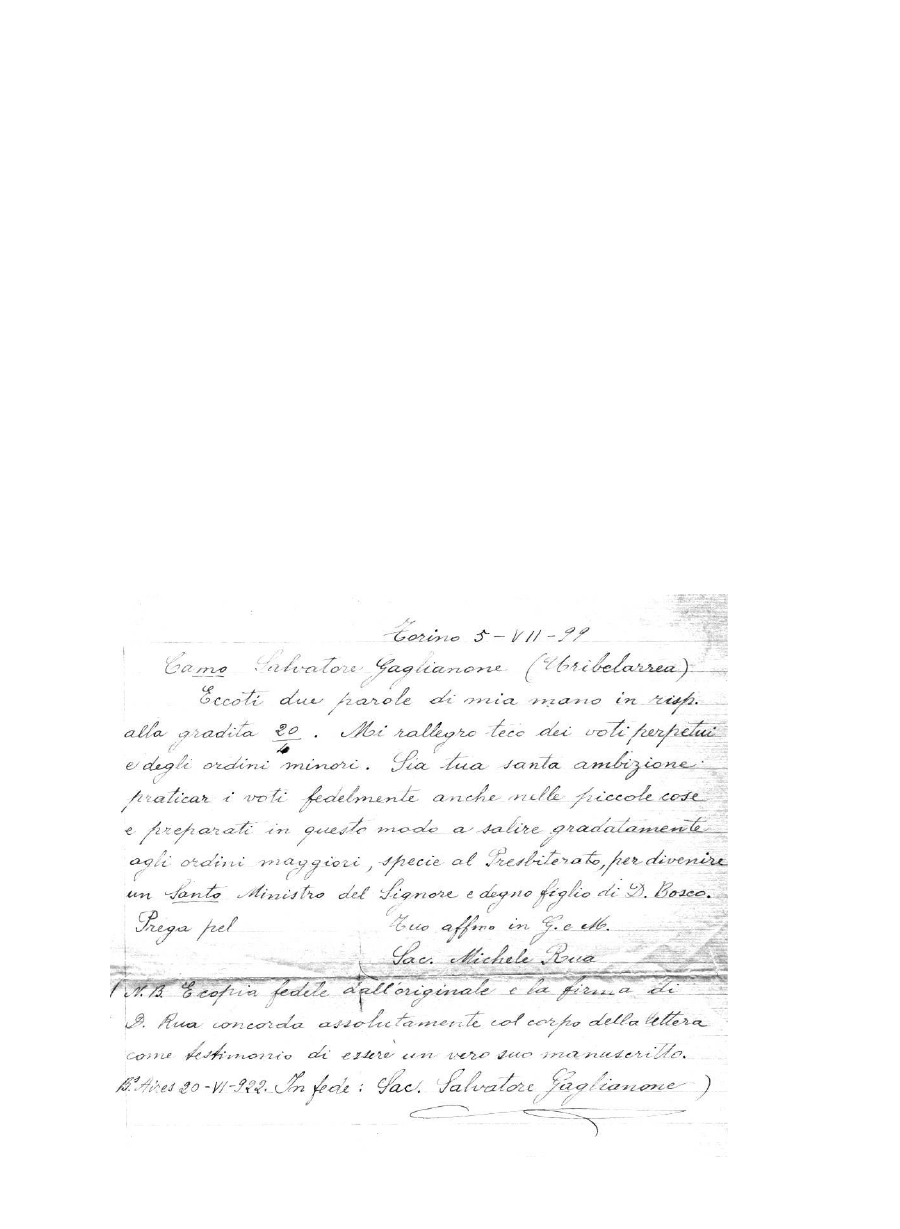 Torino 5-VII-99
Camo Salvatore Gaglianone (Uribelarrea)
Eccoti due parole di mia mano in risp.
alla gradita 20/4. Mi rallegro teco dei voti perpetui
e degli ordini minori. Sia tua santa ambizione
praticar i voti fedelmente anche nelle piccole cose
e preparati in questo modo a salire gradatamente
agli ordini maggiori, specie al Presbiterato, per divenire
un Santo Ministro del Signore e degno figlio di D. Bosco.
Prega pel Tuo affmo in G. e M.
Sac. Michele Rua
(N.B. E copia fedele dall'originale e la firma di
D. Rua concorda assolutamente col corpo della lettera
come testimonio di essere un vero suo manuscritto.
Bs Aires 20-VI-922. In fede: Sac. Salvatore Gaglianone)